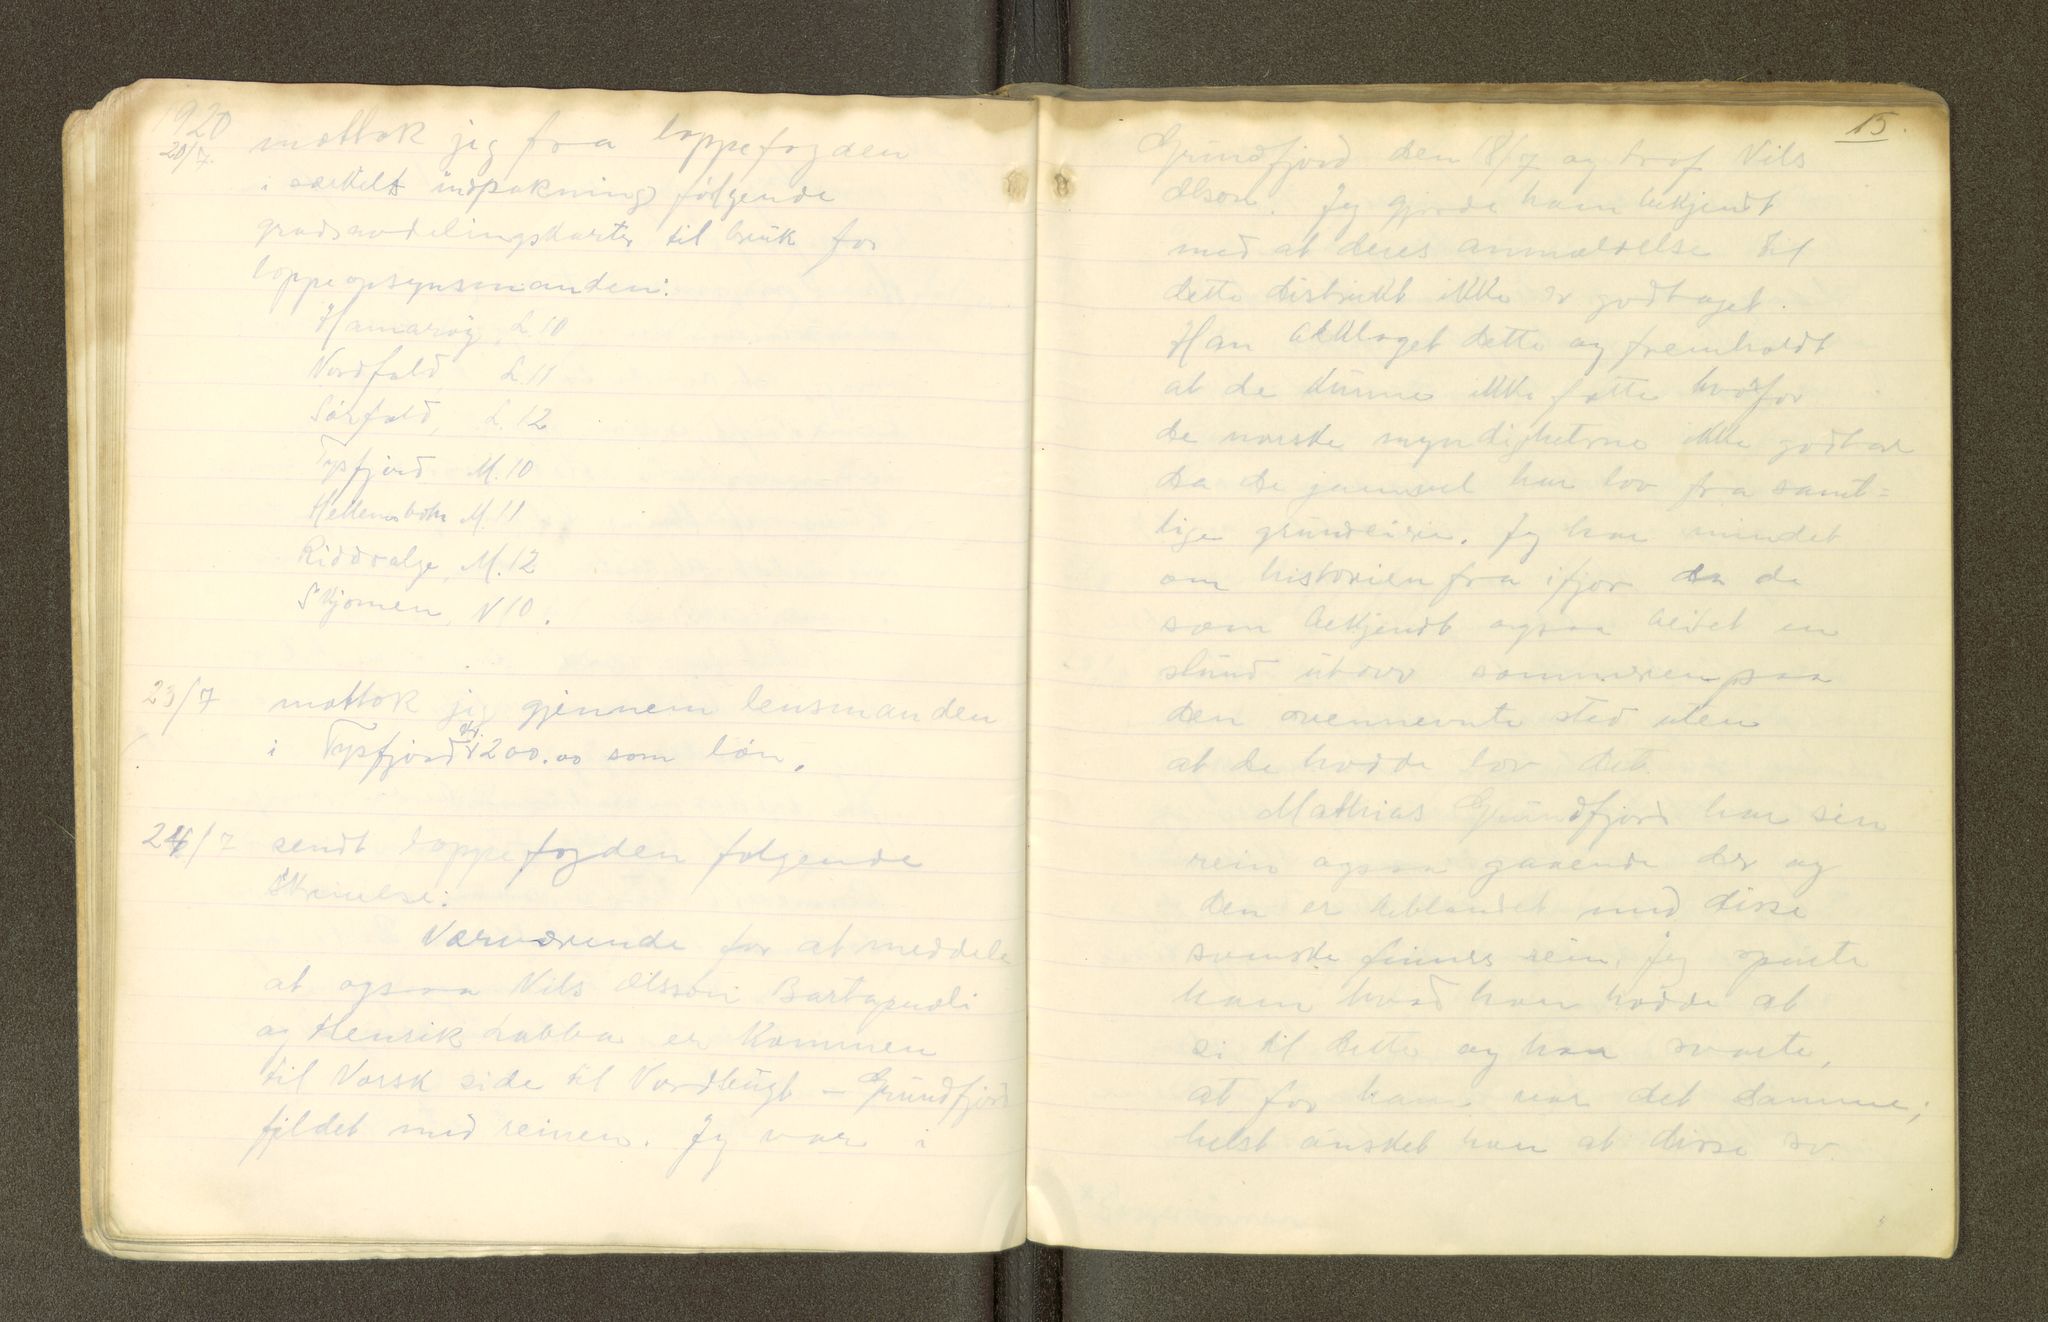 1920
20/7. mottok jeg fra lappefogden
i særkelt indpakning følgende
gradavdelingskarter til bruk for
lappeopsynsmanden:
Hamarøy, L 10
Nordfold, L. 11
Sørfold, L. 12
Tysfjord M. 10
Hellemobotn M. 11
Riddoalge, M. 12
Skjomen, N 10.
23/7 mottok jeg gjennem lensmanden
i Tysfjord kr. 200.00 som løn.
24/7 sendt lappefogden følgende
skrivelse:
Nærværende for at meddele
at ogsaa Nils Olsson Bartapueli
og Henrik Labba er kommen
til Norsk side til Nordbugt – Grundfjord
fjeldet med reinen. Jeg var i
15.
Grundfjord den 18/7 og traf Nils
Olson. Jeg gjorde ham bekjendt
med at deres anmældelse til
dette distrikt ikke er godtaget.
Han beklaget dette og fremholdt
at de kunne ikke fatte hvorfor
de norske myndigheterne ikke godtar
da de jamvel har lov fra samt=
lige grundeiere. Jeg har mindet
om historien fra ifjor da de
som bekjendt ogsaa beitet en
stund utover sommeren paa
den ovennevnte sted uten
at de hadde lov det.
Mathias Grundfjord har sin
rein ogsaa gaaende der og
den er beblandet med disse
svenske finners rein. Jeg spurte
ham hvad han hadde at
si til dette og han svarte,
at for ham var det samme;
helst ønsket han at disse sv.